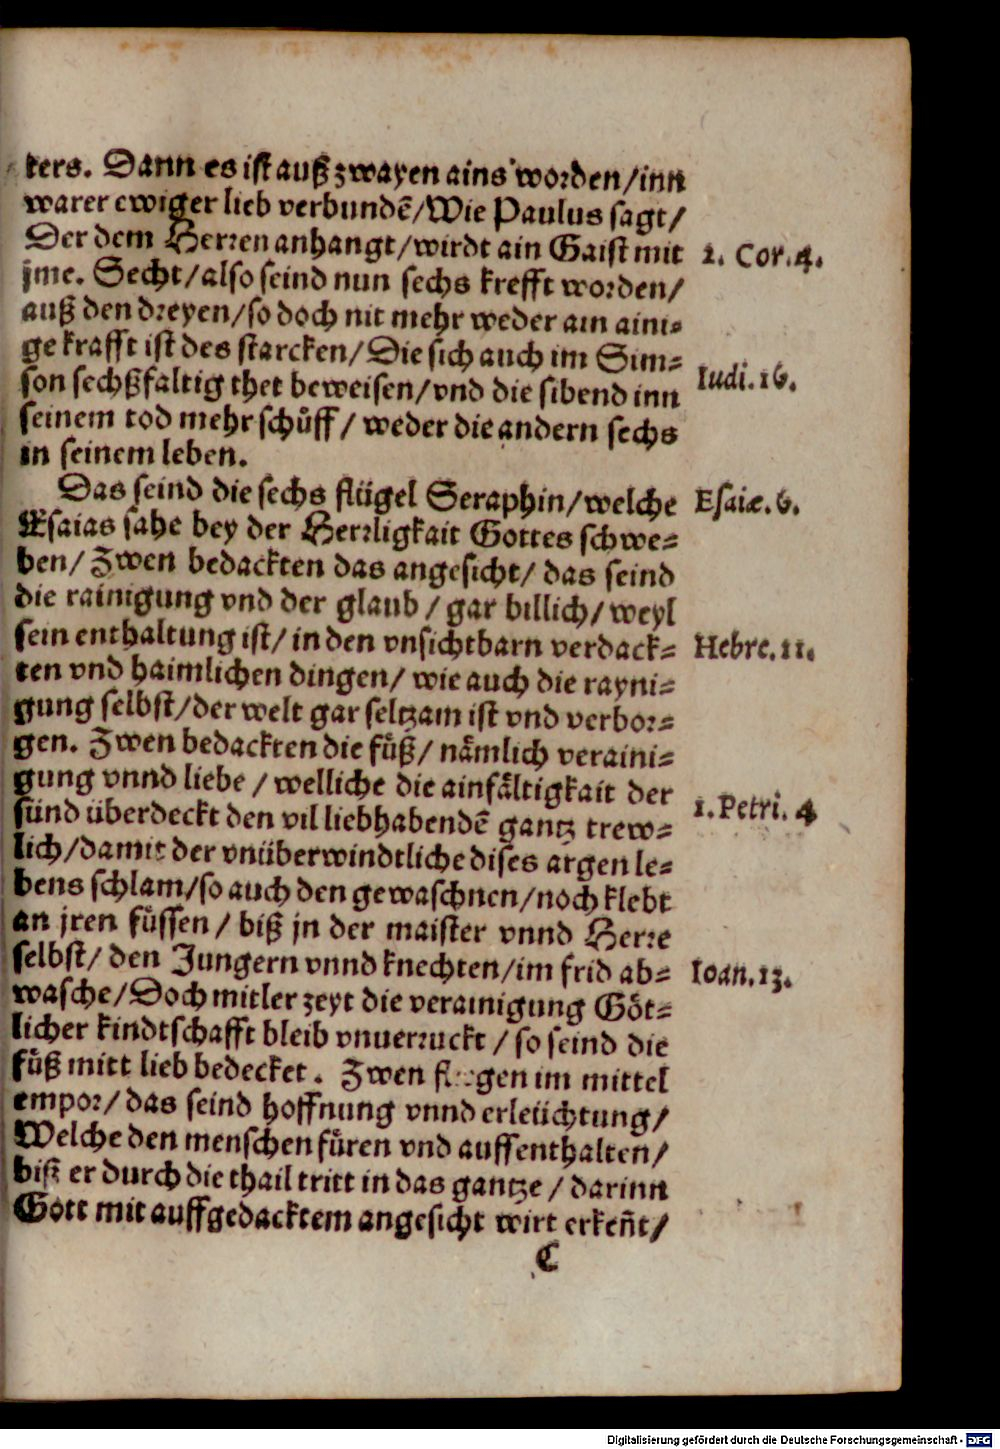 kers. Dann es ist auß zwayen ains worden/inn
warer ewiger lieb verbundē/Wie Paulus sagt/
Der dem Herren anhangt/wirdt ain Gaist mit
jme. Secht/also seind nun sechs krefft worden/
auß den dreyen/so doch nit mehr weder ain aini⸗
ge krafft ist des starcken/Die sich auch im Sim⸗
son sechßfaltig thet beweisen/vnd die sibend inn
seinem tod mehr schůff/ weder die andern sechs
in seinem leben.
Das seind die sechs flügel Seraphin/welche
Esaias sahe bey der Herrligkait Gottes schwe⸗
ben/ Zwen bedackten das angesicht/ das seind
die rainigung vnd der glaub / gar billich/ weyl
sein enthaltung ist/ in den vnsichtbarn verdack⸗
ten vnd haimlichen dingen/ wie auch die rayni⸗
gung selbst/der welt gar seltzam ist vnd verbor⸗
gen. Zwen bedackten die fůß/ nämlich veraini⸗
gung vnnd liebe / welliche die ainfältigkait der
sünd überdeckt den vil liebhabendē gantz trew⸗
lich/damit der vnüberwindtliche dises argen le⸗
bens schlam/so auch den gewaschnen/noch klebt
an jren füssen / biß jn der maister vnnd Herre
selbst/ den Jungern vnnd knechten/im frid ab⸗
wasche/Doch mitler zeyt die verainigung Göt⸗
licher kindtschafft bleib vnuerruckt / so seind die
fůß mitt lieb bedecket. Zwen im mittel
empor/ das seind hoffnung vnnd erleüchtung/
Welche den menschen füren vnd auffenthalten/
biß er durch die thail tritt in das gantze / darinn
Gott mit auffgedacktem angesicht wirt erkeñt/
C
1. Cor. 4.
Iudi. 16.
Esaiæ. 6.
Hebre. 11.
1. Petri. 4
Ioan. 13.
Digitalisierung gefördert durch die Deutsche Forschungsgemeinschaft - DFG